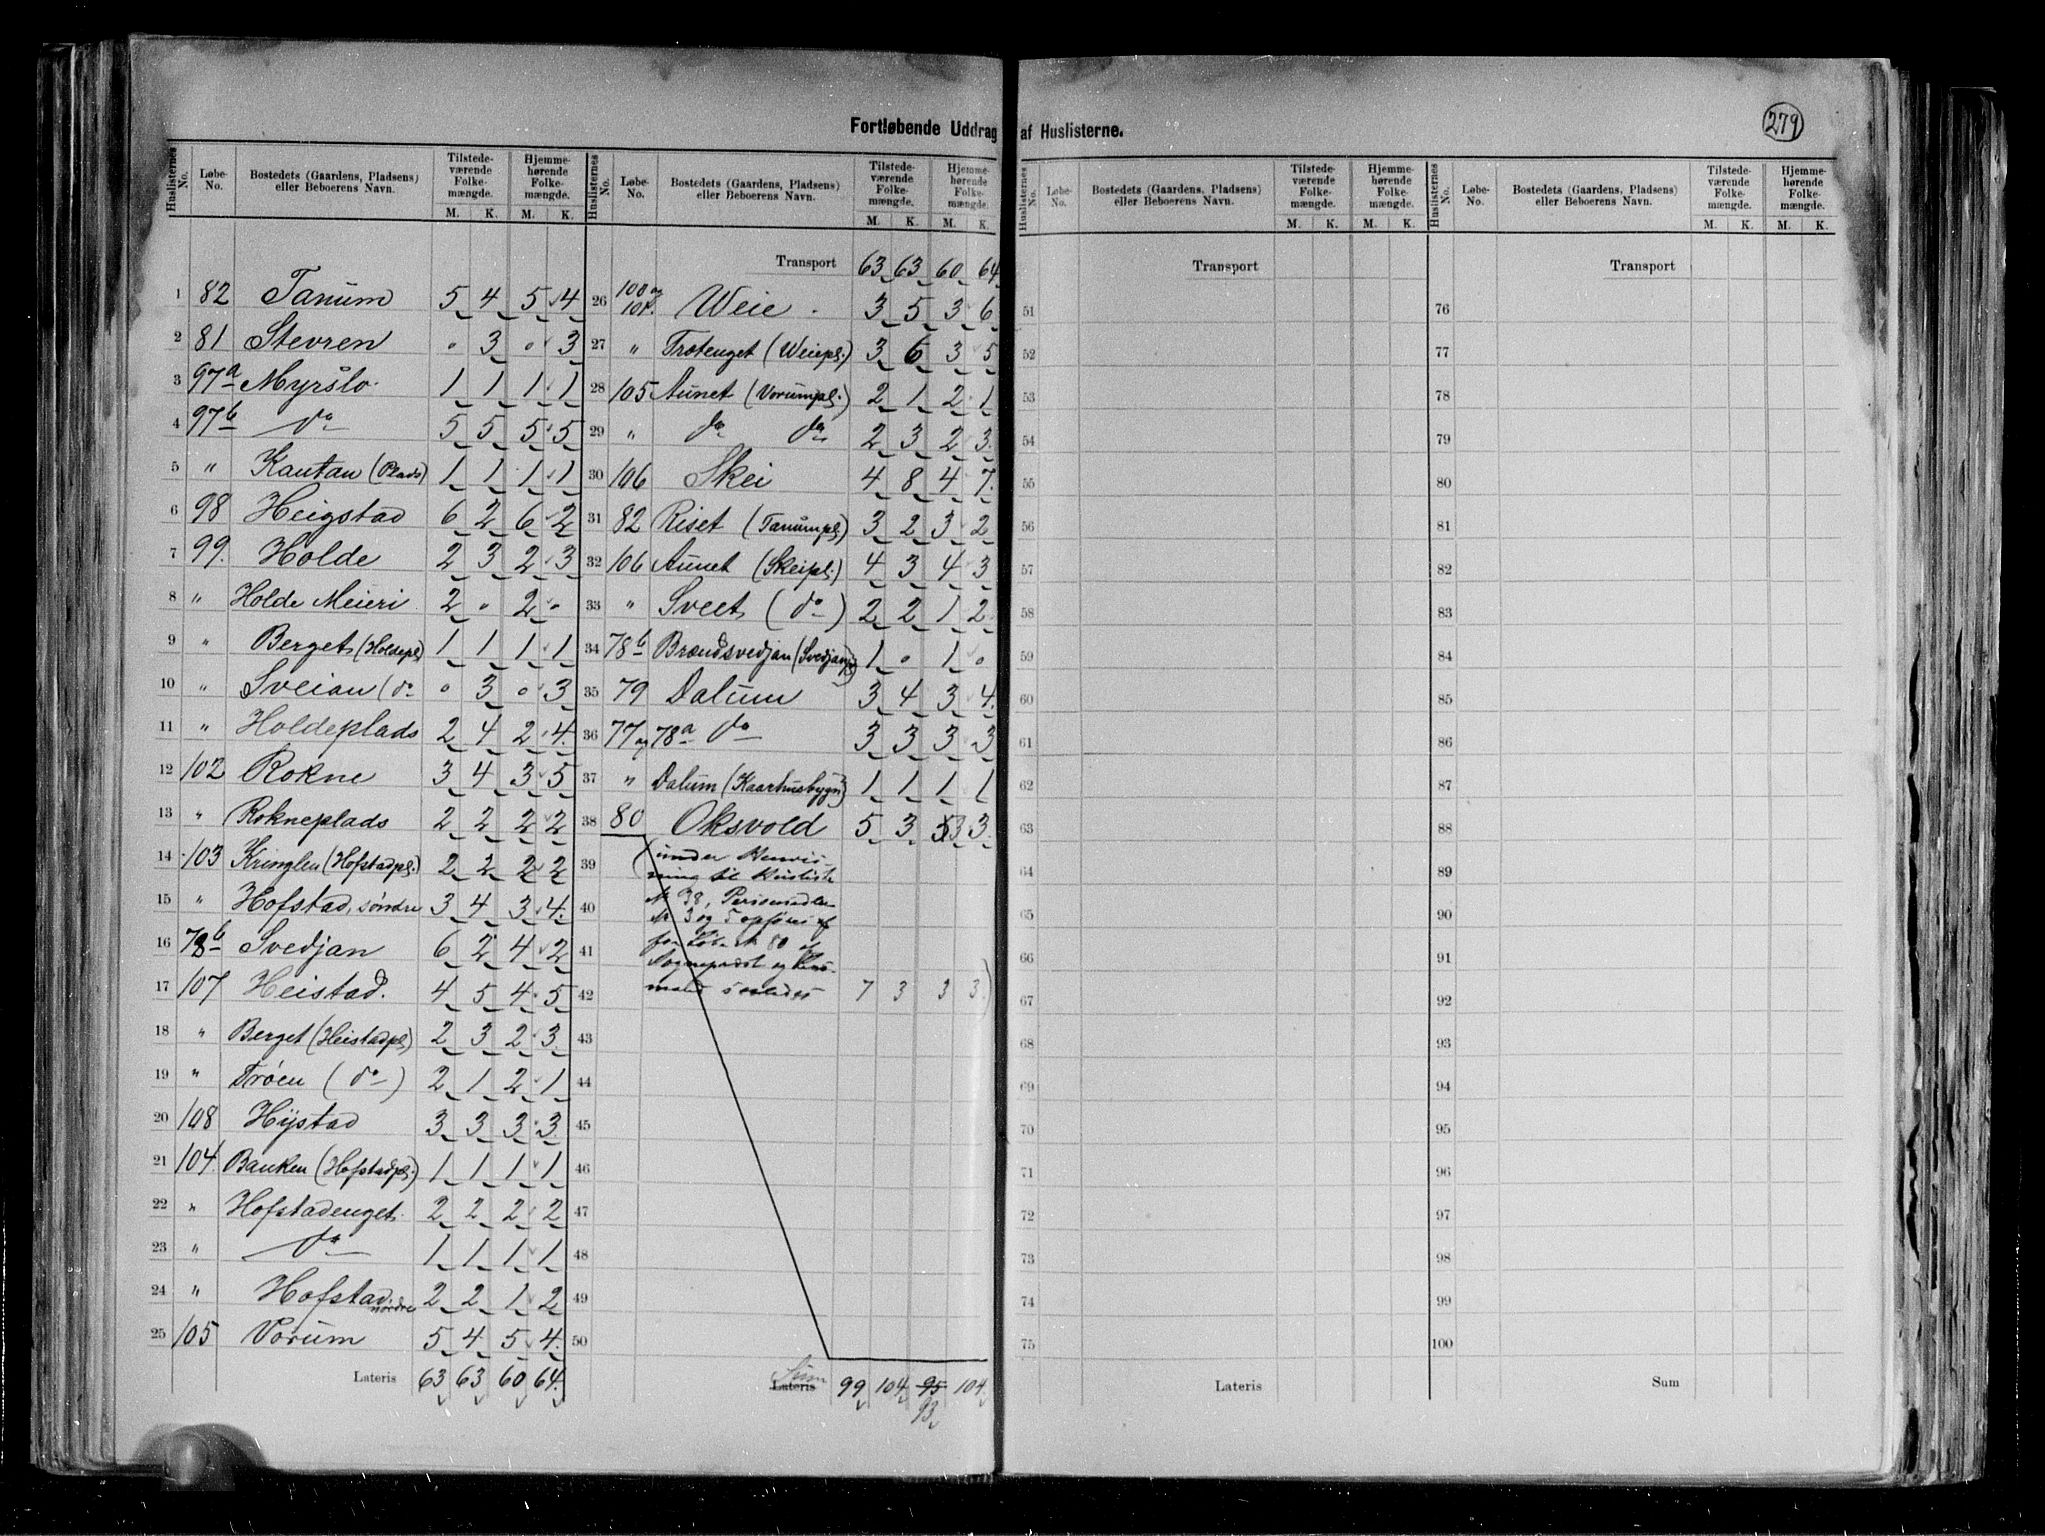 Fortløbende Uddrag af Huslisterne.
279
Huslisternes No. Løbe-No. Bostedets (Gaardens, Pladsens) eller Beboerens Navn. Tilstedeværende Folkemængde. M. K. Hjemmehørende Folkemængde. M. K.
1 82 Tanum 5 4 5 4
2 81 Stevren " 3 " 3
3 97a Myrslo 1 1 1 1
4 97b do 5 5 5 5
5 " Kantan (Plads) 1 1 1 1
6 98 Heigstad 6 2 6 2
7 99. Holde 2 3 2 3
8 " Holde Meieri 2 " 2 "
9 " Berget (Holdepl) 1 1 1 1
10 " Sveian (do " 3 " 3
11 " Holdeplads 2 4 2 4.
12 102 Rokne 3 4 3 5
13 " Rokneplads 2 2 2 2
14 103 Kringlen (Hofstadpl.) 2 2 2 2
15 " Hofstad, søndre 3 4 3 4.
16 78b Svedjan 6 2 4 2
17 107 Heistad. 4 5 4 5
18 " Berget (Heistadpl) 2 3 2 3.
19 " Trøen (do) 2 1 2 1
20 108 Hÿstad 3 3 3 3.
21 104. Banken (Hofstadpl.) 1 1 1 1
22 " Hofstadenget 2 2 2 2
23 " do 1 1 1 1
24 " Hofstad. nordre 2 2 1 2
25 105 Vorum 5 4 5 4.
Lateris 63 63 60 64.
Huslisternes No. Løbe-No. Bostedets (Gaardens, Pladsens) eller Beboerens Navn. Tilstedeværende Folkemængde. M. K. Hjemmehørende Folkemængde. M. K.
Transport 63 63 60 64
26 100 og 101. Weie . 3 5 3 6
27 " Trøtenget (Weiepl.) 3 6 3 5
28 105 Aunet (Vorumpl.) 2 1 2 1
29 " do do 2 3 2 3.
30 106 Skei 4 8 4 7.
31 82 Riset (Tanumpl) 3 2 3 2
32 106 Aunet (Skeipl.) 4 3 4 3
33 " Sveet (do) 2 2 1 2
34 78b Brændsvedjan (Svedjanpl) 1 " 1 "
35 79 Dalum 3 4 3 4.
36 77 og 78a do 3 3 3 3
37 " Dalum (Kaarhusbygn) 1 1 1 1
38 80 Oksvold 5 3 5 3 3.
39 (under Henvis-
ning til Husliste
40 № 38, Personsedler
№ 3 og 5 opføres
41 for Løbe № 80 af
Sogneprest og
42 7 3 3 3)
43
44
45
46
47
48
49
50
Sum Lateris 99 104 95 104.
93
Huslisternes No. Løbe-No. Bostedets (Gaardens, Pladsens) eller Beboerens Navn. Tilstedeværende Folkemængde. M. K. Hjemmehørende Folkemængde. M. K.
Transport
51
52
53
54
55
56
57
58
59
60
61
62
63
64
65
66
67
68
69
70
71
72
73
74
75
Lateris
Huslisternes No. Løbe-No. Bostedets (Gaardens, Pladsens) eller Beboerens Navn. Tilstedeværende Folkemængde. M. K. Hjemmehørende Folkemængde. M. K.
Transport
76
77
78
79
80
81
82
83
84
85
86
87
88
89
90
91
92
93
94
95
96
97
98
99
100
Sum